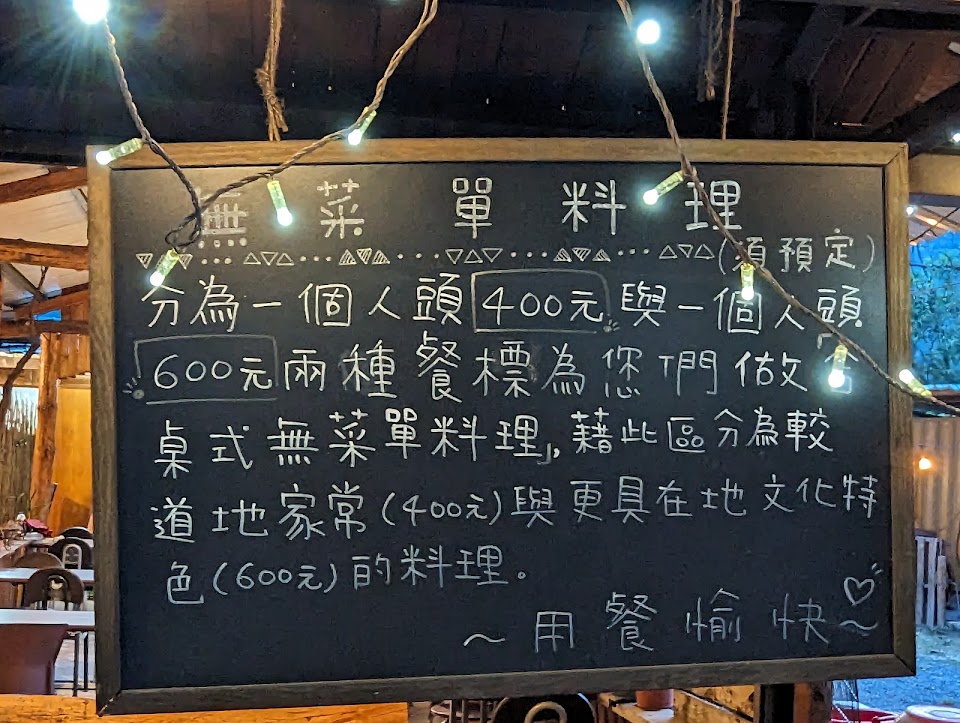 無菜單料理
(須預定)
分為一個人頭400元與一個人頭
600元兩種餐標為您們做「合
桌式無菜單料理」,藉此區分為較
道地家常(400元)與更具在地文化特
色(600元)的料理。
~用餐愉快~